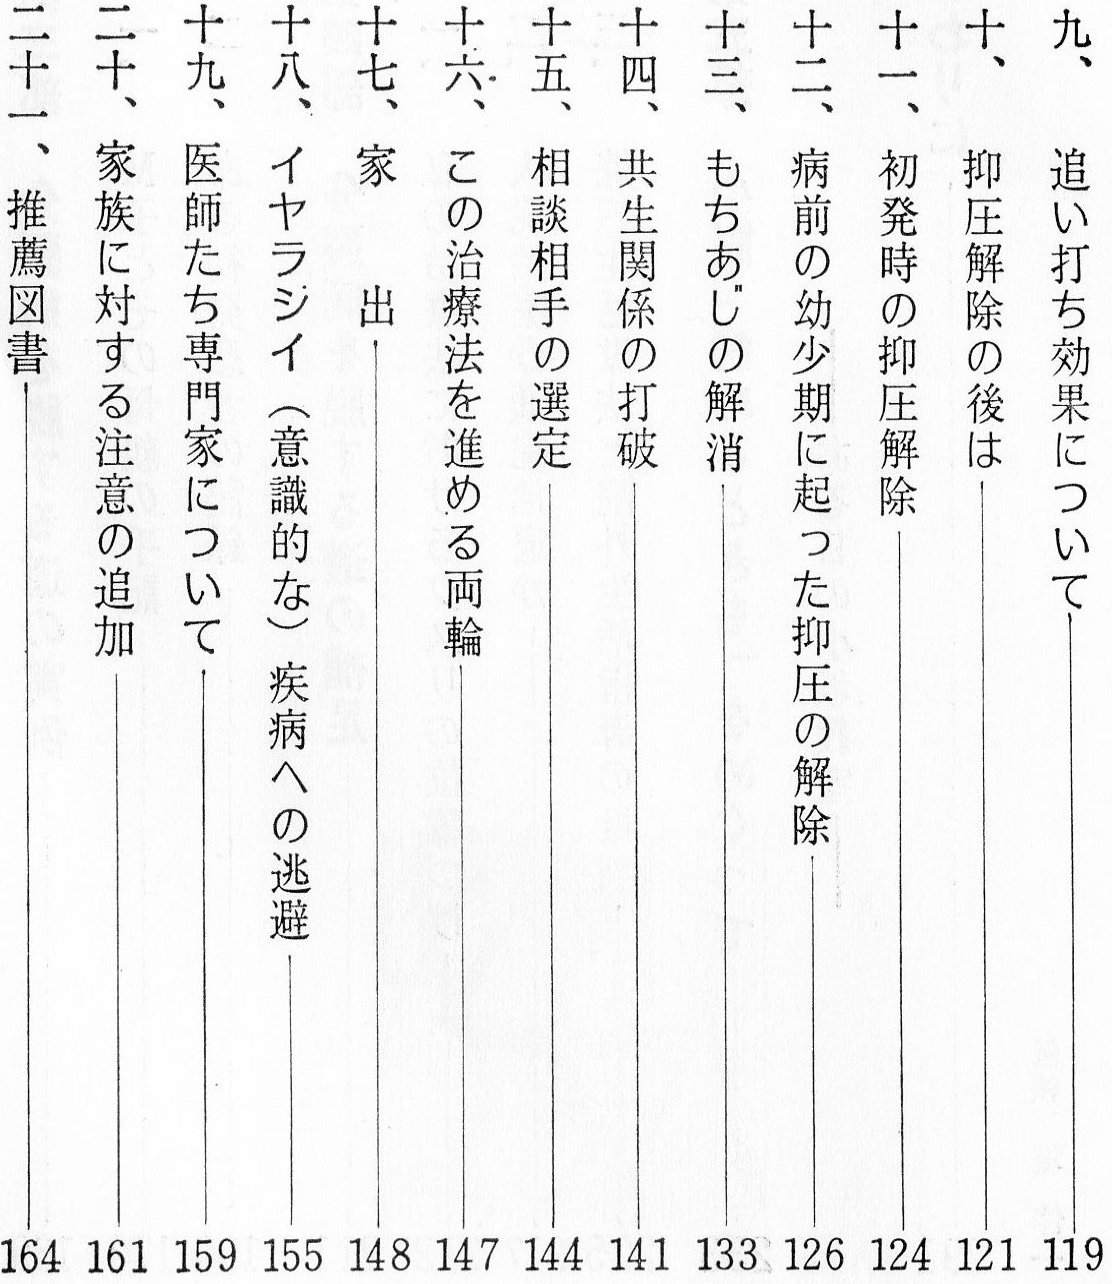 九、追い打ち効果について 119
十、抑圧解除の後は 121
十一、初発時の抑圧解除 124
十二、病前の幼少期に起った抑圧の解除 126
十三、もちあじの解消 133
十四、共生関係の打破 141
十五、相談相手の選定 144
十六、この治療法を進める両輪 147
十七、家出 148
十八、イヤラジイ（意識的な）疾病への逃避 155
十九、医師たち専門家について 159
二十、家族に対する注意の追加 161
二十一、推薦図書 164